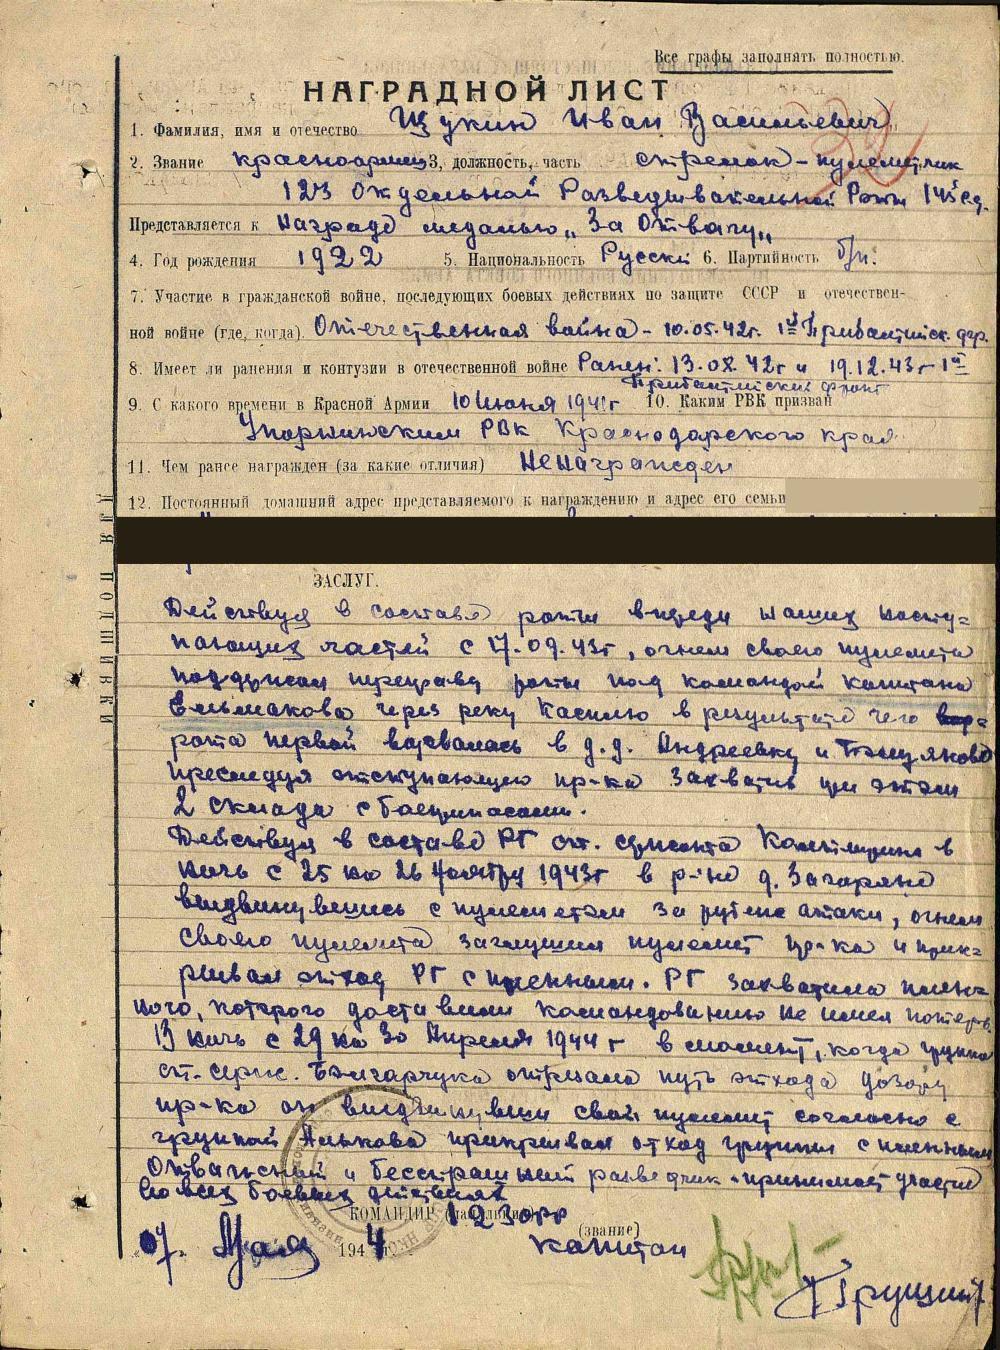 Все графы заполнять полностью.
НАГРАДНОЙ ЛИСТ
1. Фамилия, имя и отчество Щукин Иван Васильевич
2. Звание красноармеец 3, должность, часть стрелок-пулеметчик
123 Отдельной Разведывательной Роты 145 сд.
Представляется к Награде медалью „За Отвагу„
4. Год рождения 1922 5. Национальность Русский 6. Партийность б/п.
7. Участие в гражданской войне, последующих боевых действиях по защите СССР и отечествен-
ной войне (где, когда). Отечественная война - 10.05.42г. 1й Прибалтийск. фр.
8. Имеет ли ранения и контузии в отечественной войне Ранен: 13.08.42г и 19.12.43г - 1й
Прибалтийский фронт
9. С какого времени в Красной Армии 10 Июня 1941г 10. Каким РВК призван
РВК Краснодарского края
11. Чем ранее награжден (за какие отличия) Ненагражден
12. Постоянный домашний адрес представляемого к награждению и адрес его семьи
ДЛЯ ПОДШИВКИ
ЗАСЛУГ.
Действуя в составе роты впереди наших насту-
пающих частей с 17.09.43г, огнем своего пулемета
поддержал переправу роты под командой капитана
Ельмакова через реку Касплю в результате чего
рота первой ворвалась в д.д. Андреевку и
преследуя отступающего пр-ка захватив при этом
2 склада с боеприпасами.
Действуя в составе РГ ст. сержанта в
ночь с 25 на 26 Ноября 1943г в р-не д. Загоряне
выдвинувшись с пулеметом за рубеж атаки, огнем
своего пулемета заглушил пулемет пр-ка и прик-
рывал отход РГ с пленным. РГ захватила плен-
ного, которого доставили командованию не имея потерь.
В ночь с 29 на 30 Апреля 1944г в момент, когда группа
ст. серж. Бондарчука отрезала путь отхода дозору
пр-ка он выдвинувши свой пулемет согласно с
группой Панькова прикрывал отход группы с пленным
Отважный и бесстрашный разведчик - принимает участие
во всех боевых действиях
КОМАНДИР (начальник) 123 ОРР
(звание)
07. Мая 1944 г. капитан